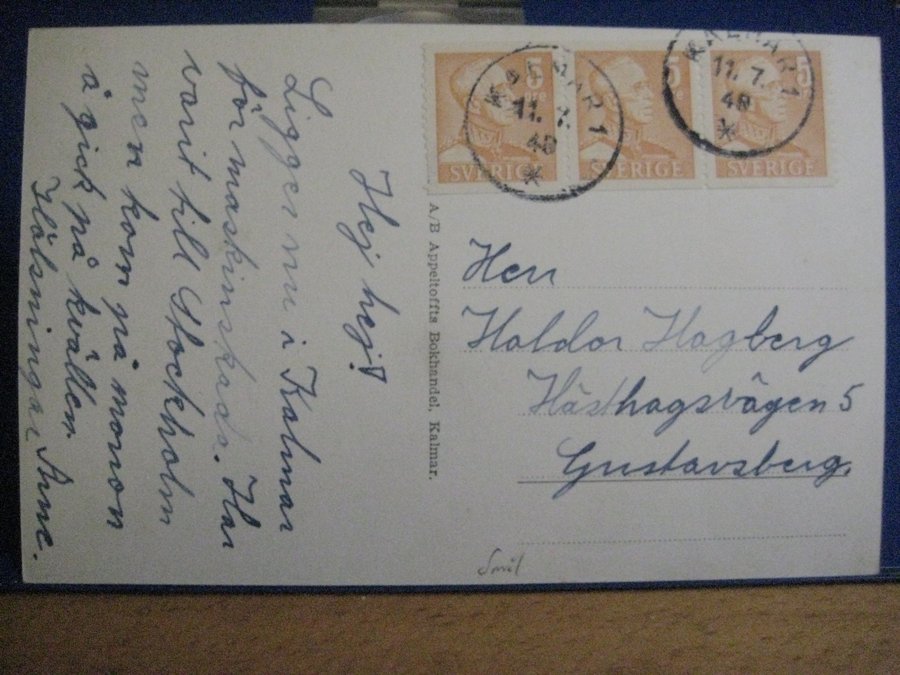 Hej hej!
Ligger nu i Kalmar
för maskinskada. Har
varit till Stockholm
men kom på morron
å gick på kvällen
Hälsningar Arne.
A/B Appeltoffts Bokhandel, Kalmar.
5
SVERIGE
5
SVERIGE
5
SVERIGE
KALMAR 1
11. 7.
48
KALMAR 1
11. 7.
48
Herr
Haldor Hagberg
Hästhagsvägen 5
Gustavsberg.
Smål